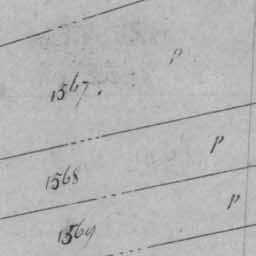 1567. p
1568 p
1569 p